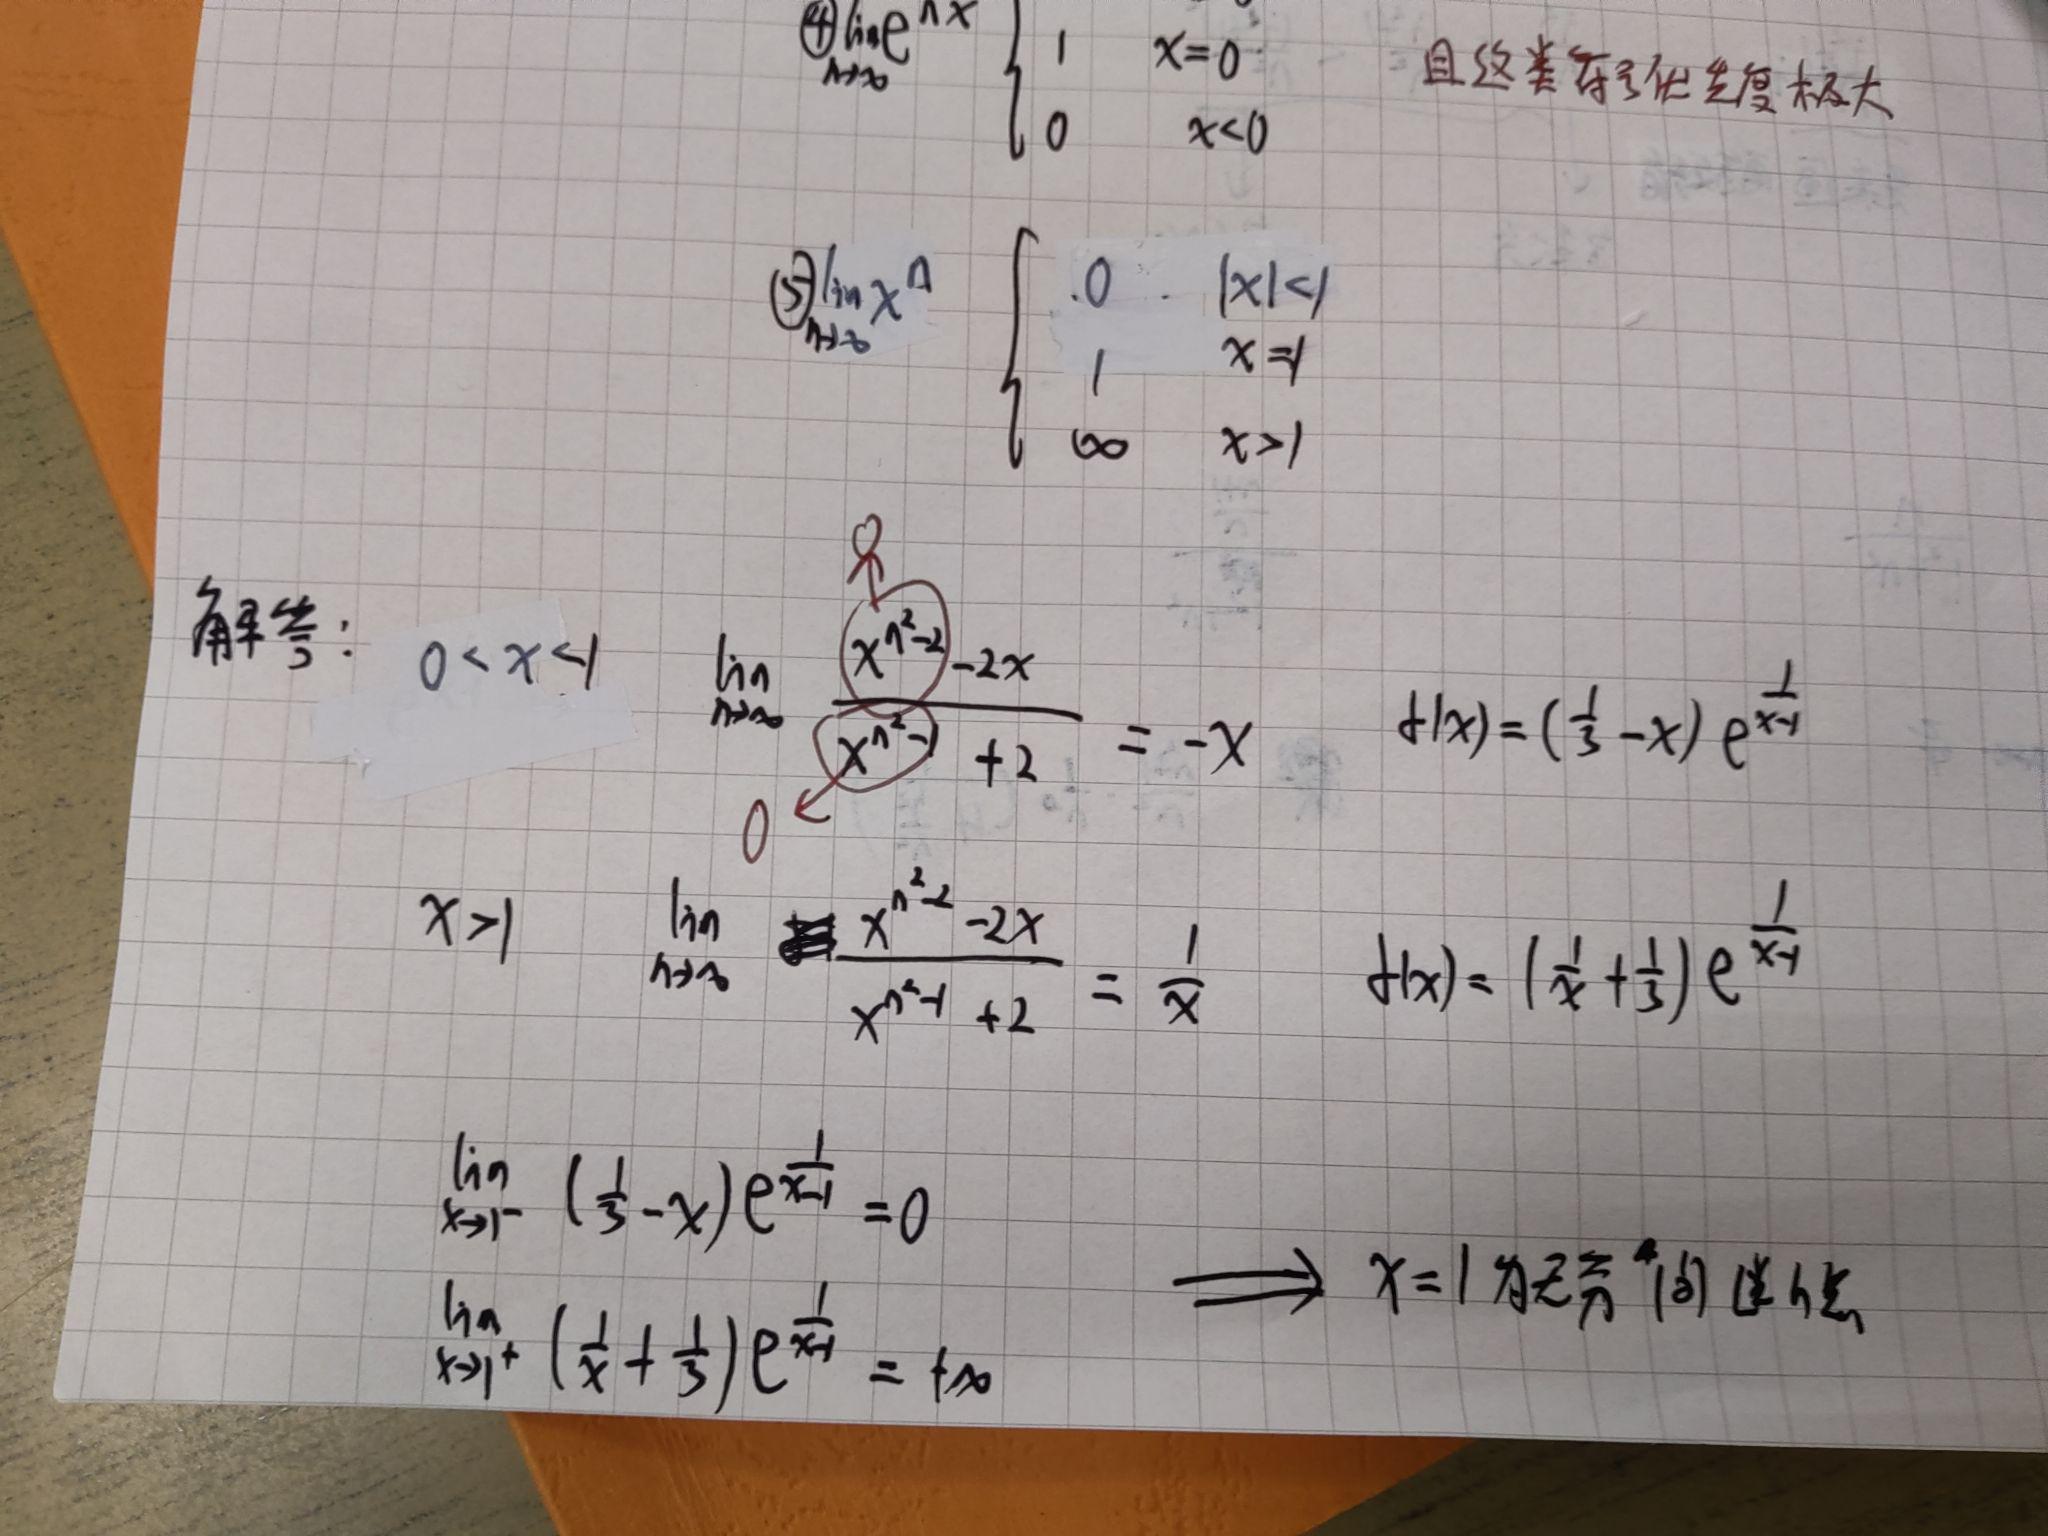 ④ lim n→∞ e^{nx} { 1 x=0
0 x<0
且这类变化速度极大
⑤ lim n→∞ x^n { 0 |x|<1
1 x=1
∞ x>1
0
解答: 0<x<1 lim n→∞ (x^{n²-2} -2x)/(x^{n²-1} +2) = -x f(x)=(1/3 -x) e^{1/(x-1)}
0
x>1 lim n→∞ (x^{n²-2} -2x)/(x^{n²-1} +2) = 1/x f(x)=(1/x + 1/3) e^{1/(x-1)}
lim x→1⁻ (1/3 -x) e^{1/(x-1)} =0
⟹ x=1为无穷间断点
lim x→1⁺ (1/x + 1/3) e^{1/(x-1)} = +∞